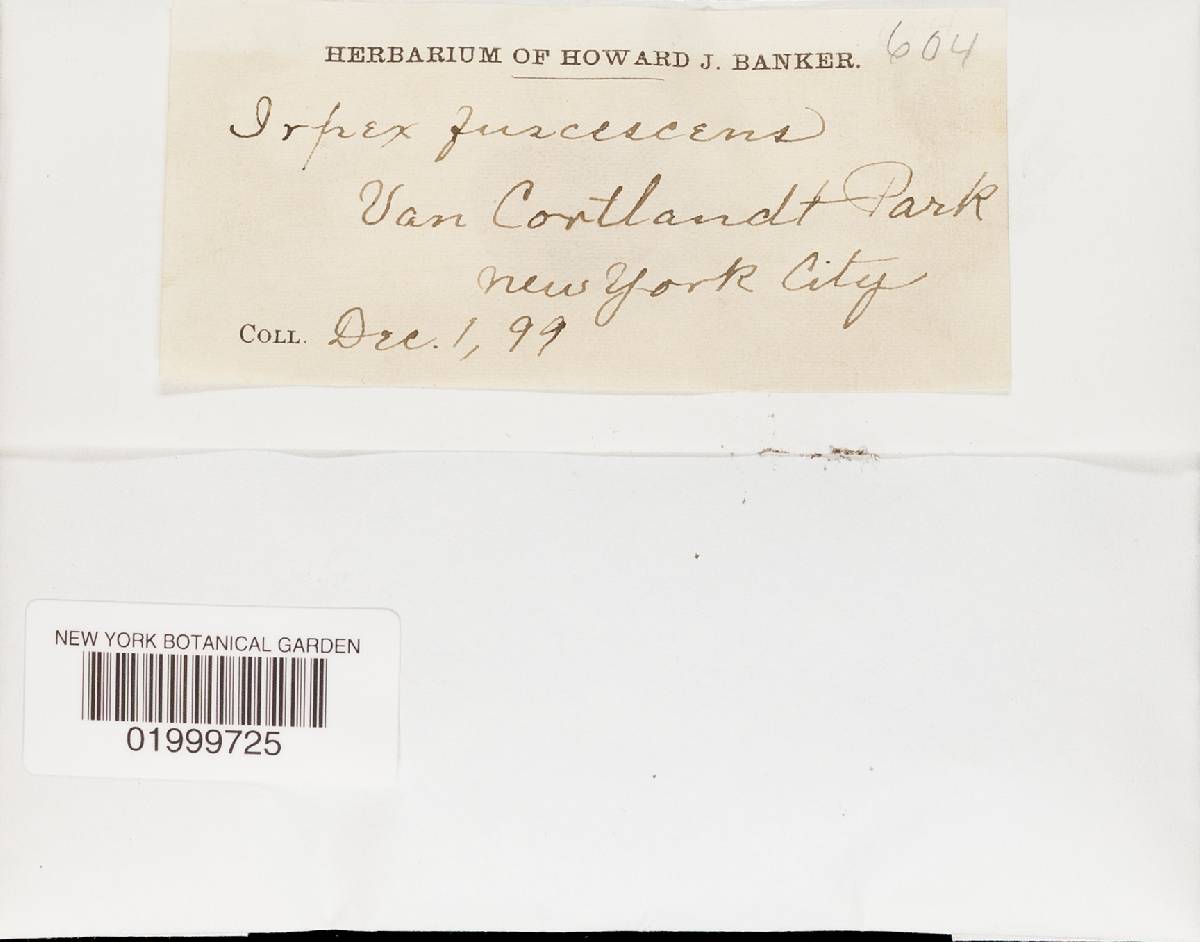 HERBARIUM OF HOWARD J. BANKER. 604
Irpex fuscescens
Van Cortlandt Park
New York City
COLL. Dec. 1, 99
NEW YORK BOTANICAL GARDEN
01999725